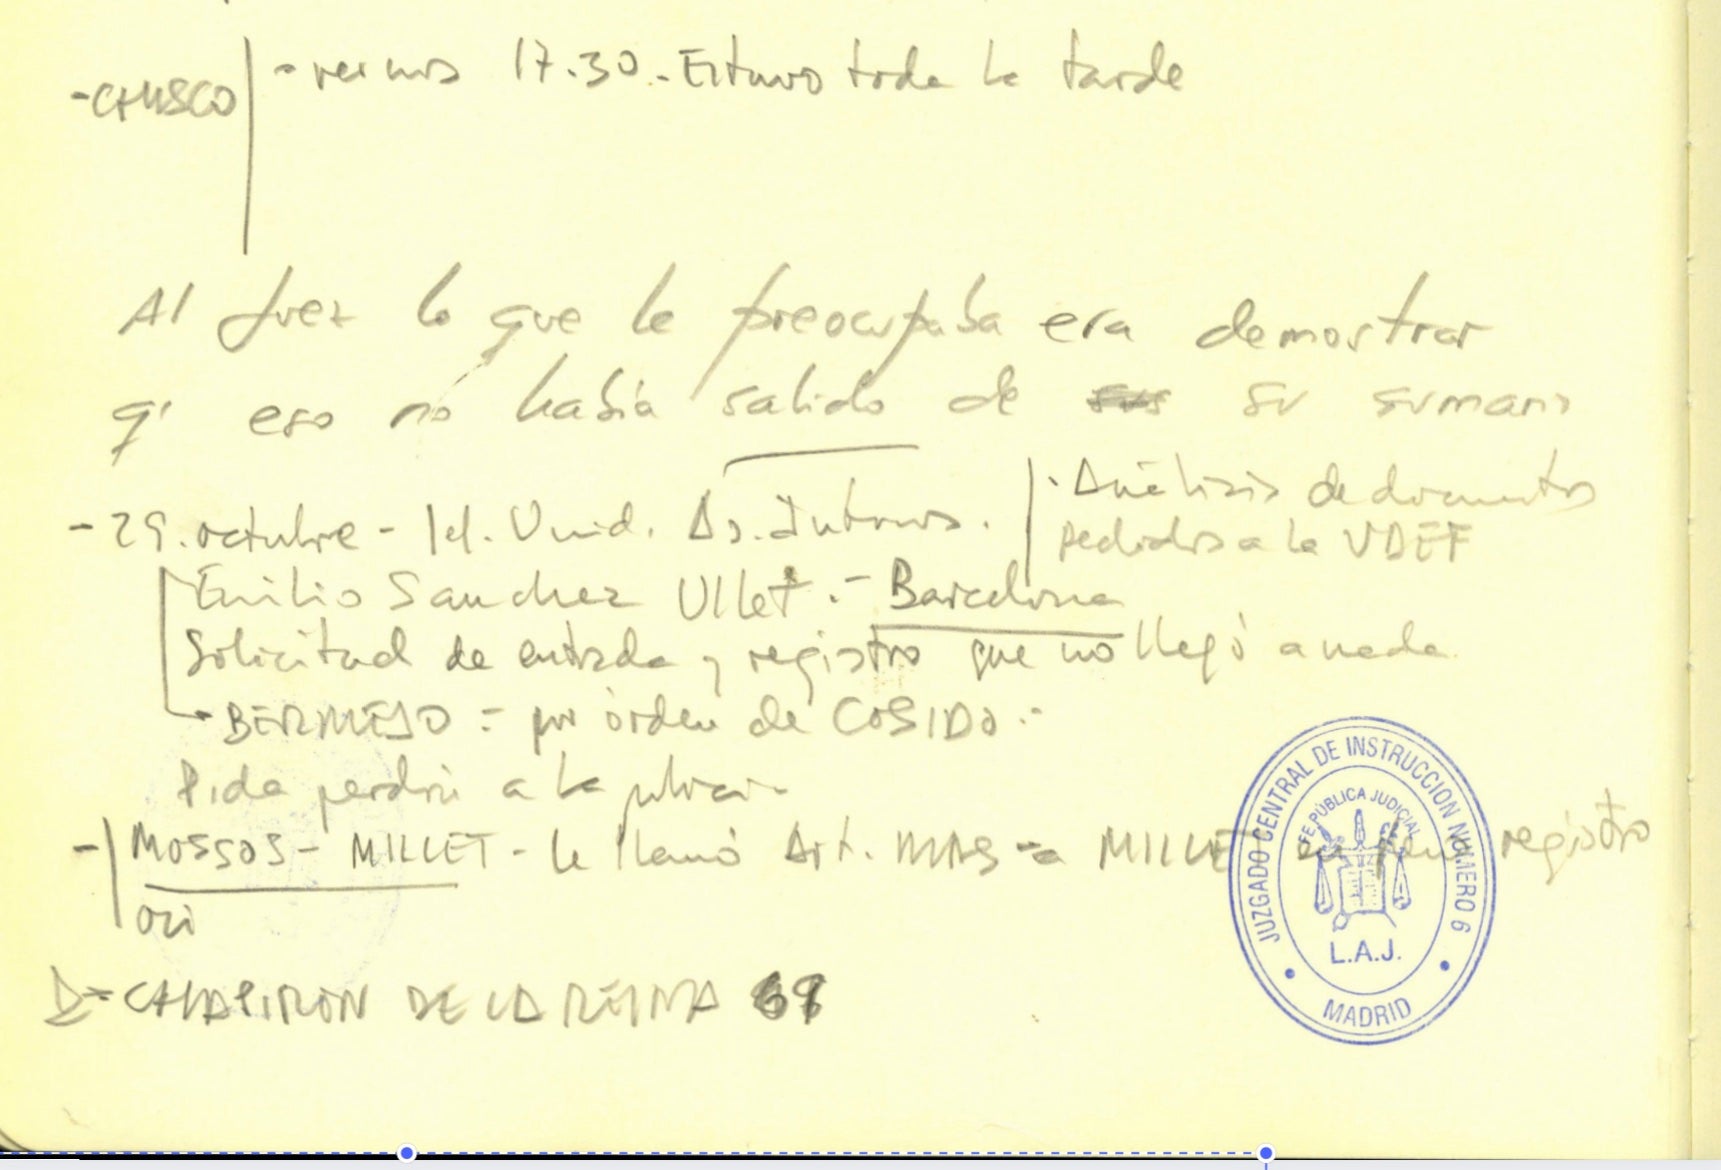 -CHUSCO | - vernos 17.30.- Estuvo toda la tarde
Al Juez lo que le preocupaba era demostrar
q' eso no había salido de su sumario
- 29. octubre - Id. Unid. As. Internos.
· Análisis de documentos
pedidos a la UDEF
Emilio Sanchez Ullet .- Barcelona
Solicitud de entrada y registro que no llegó a nada.
BERMEJO = por orden de COSIDO.-
Pida perdón a la
- MOSSOS - MILLET - le llamó Art. MAS a MILLET registro
JUZGADO CENTRAL DE INSTRUCCION NUMERO 6
FE PÚBLICA JUDICIAL
L.A.J.
MADRID
DE LA REINA